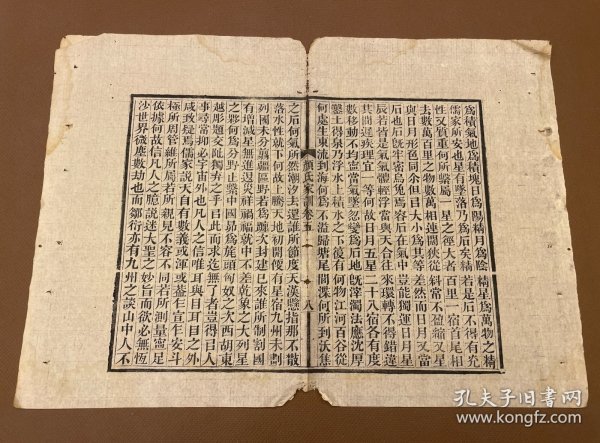 爲積氣地爲積塊日爲陽精月爲陰精星爲萬物之精
儒家所安也星有墜落乃爲石矣精若是石不得有光
性又質重何所繫屬一星之徑大者百里一宿首尾相
去數萬百里之物數萬相連闊狹從斜常不盈縮又星
與日月形色同尒但㠯大小爲其等差然而日月又當
石也石旣牢密烏兔焉容石在氣中豈能獨運日月星
辰若皆是氣氣體輕浮當與天合往來環轉不得錯違
其間遲疾理宜一等何故日月五星二十八宿各有度
數移動不均寧當氣墜忽變爲石地旣滓濁法應沈厚
鑿土得泉乃浮水上積水之下復有何物江河百谷從
何處生東流到海何爲不溢歸塘尾閭渫何所到沃焦
顏氏家訓卷五
八
之石何氣所然潮汐去還誰所節度天漢懸指那不散
落水性就下何故上騰天地初開便有星宿九州未劃
列國未分翦疆區野若爲躔次封建㠯來誰所制割國
有增減星無進退災祥禍福就中不差乾象之大列星
之夥何爲分野止繫中國昴爲旄頭匈奴之次西胡東
越彫題交阯獨棄之乎㠯此而求迄無了者豈得㠯人
事尋常抑必宇宙外也凡人之信唯耳與目耳目之外
咸致疑焉儒家說天自有數義或渾或蓋乍宣乍安斗
極所周管維所屬若所親見不容不同若所測量寧足
依據何故信凡人之臆說迷大聖之妙旨而欲必無恆
沙世界微塵數劫也而鄒衍亦有九州之談山中人不
孔夫子旧书网
www.kongfz.com